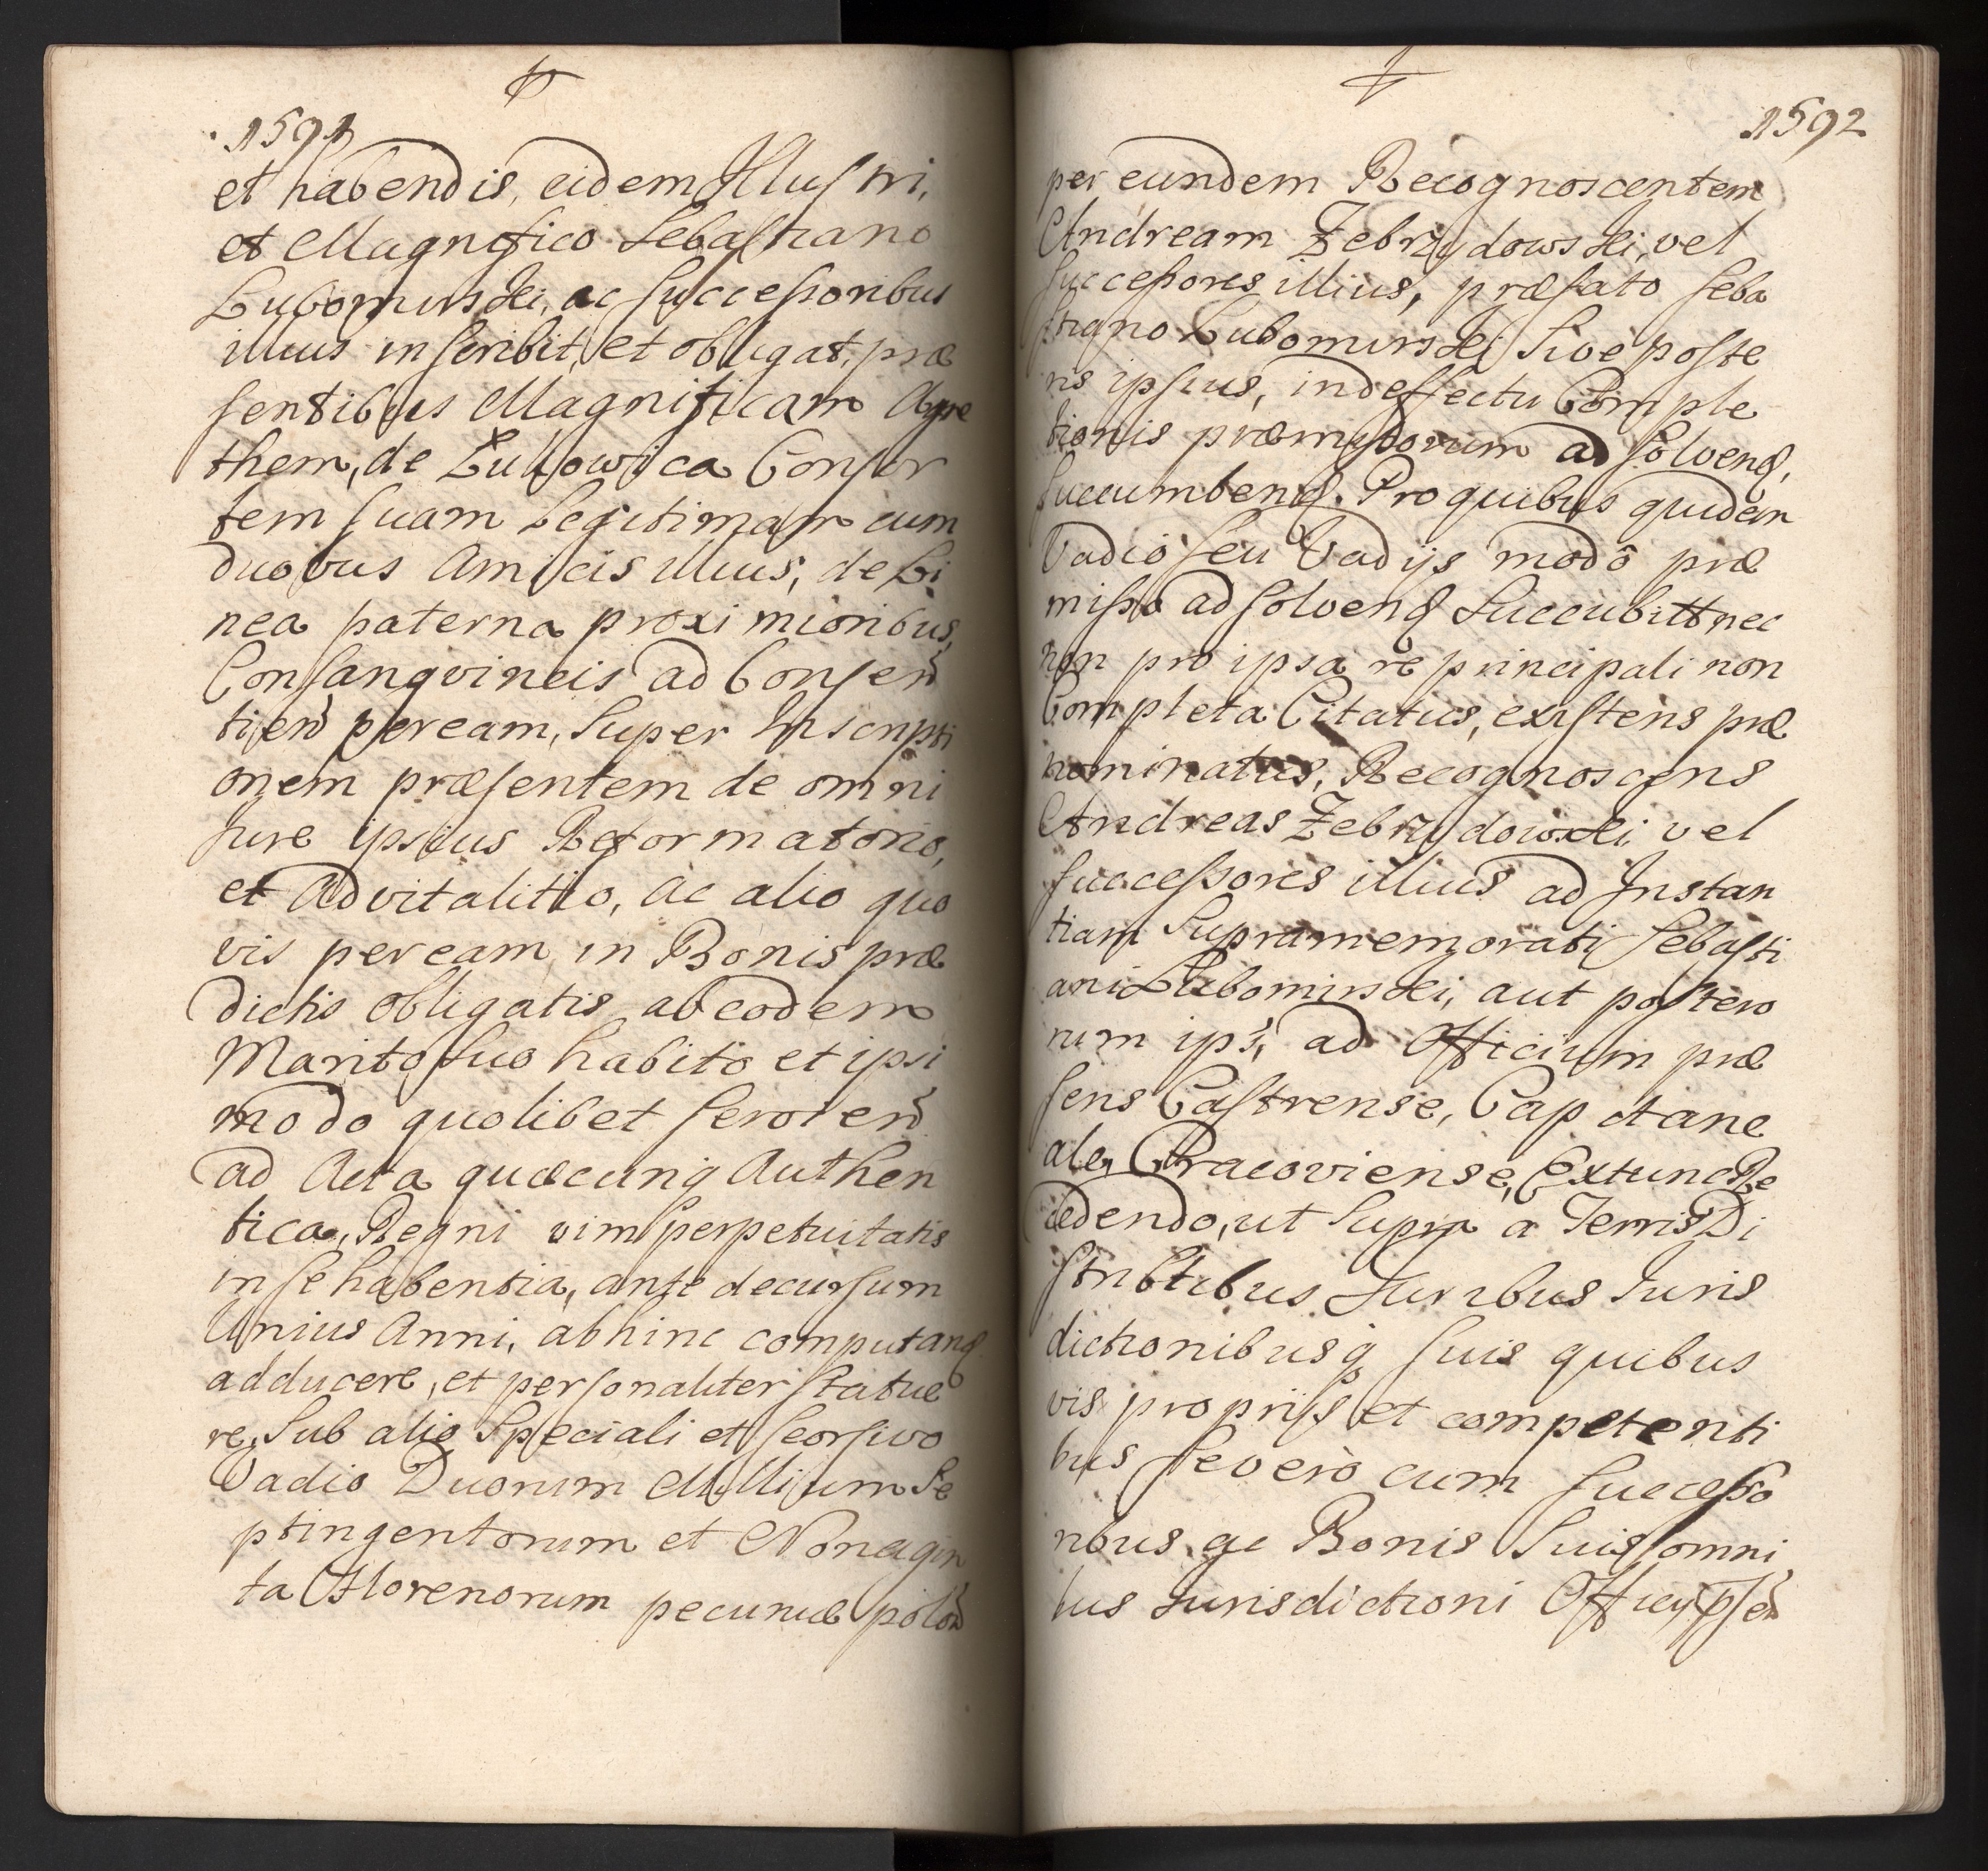 1591
et habendis, eidem Illustri,
et Magnifico Sebastiano
Lubomirski, ac successoribus
illius inscribit, et obligat, præ
sentibus Magnificam Agne
them, de Żukowica Consor
tem suam Legitimam cum
duobus Amicis illius, de Li
nea paterna proximioribus,
Consangvineis ad Consen
tien per eam, Super Inscripti
onem præsentem de omni
Jure ipsius Reformatorio,
et Advitalitio, ac alio quo
vis per eam in Bonis præ
dictis obligatis ab eodem
Marito suo habito et ipsi
modo quolibet servien
ad Acta quæcunq Authen
tica, Regni vim perpetuitatis
in se habentia, ante decursum
Unius Anni, abhinc computand
adducere, et personaliter statue
re, Sub alio Speciali et seorsivo
Vadio Duorum Millium Se
ptingentorum et Nonagin
ta Florenorum pecuniæ polon
1592
per eundem Recognoscentem
Andream Zebrzydowski, vel
successores illius, præfato Seba
stiano Lubomirski Sive poste
ris ipsius, in deffectu Comple
tionis præmissorum ad solvend,
succumbend. Pro quibus quidem
Vadio seu Vadijs modô præ
misso ad solvend Succubitt nec
non pro ipsa re principali non
Completa Citatus, existens præ
nominatus, Recognoscens
Andreas Zebrzydowski vel
successores illius ad Instan
tiam Supramemorati Sebasti
ani Lubomirski, aut postero
rum ips, ad Officium præ
sens Castrense, Capitane
ale, Cracoviense, Extunc Re
cedendo, ut Supra a Terris Di
strictibus Juribus Juris
dictionibusq suis quibus
vis proprijs et competenti
bus se vero cum successo
ribus ac Bonis Suis omni
bus Jurisdictioni Officij psen